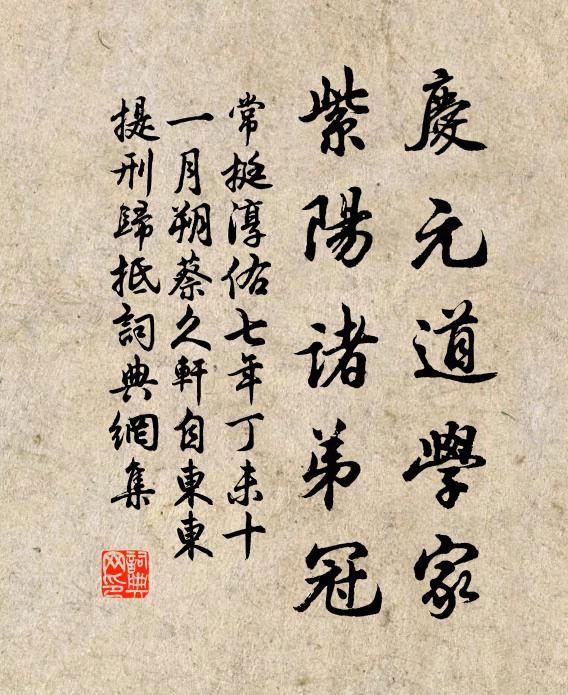 慶元道學家
紫陽諸弟冠
常挺淳佑七年丁未十
一月朔蔡久軒自東東
提刑歸抵詞典網集
詞典網印